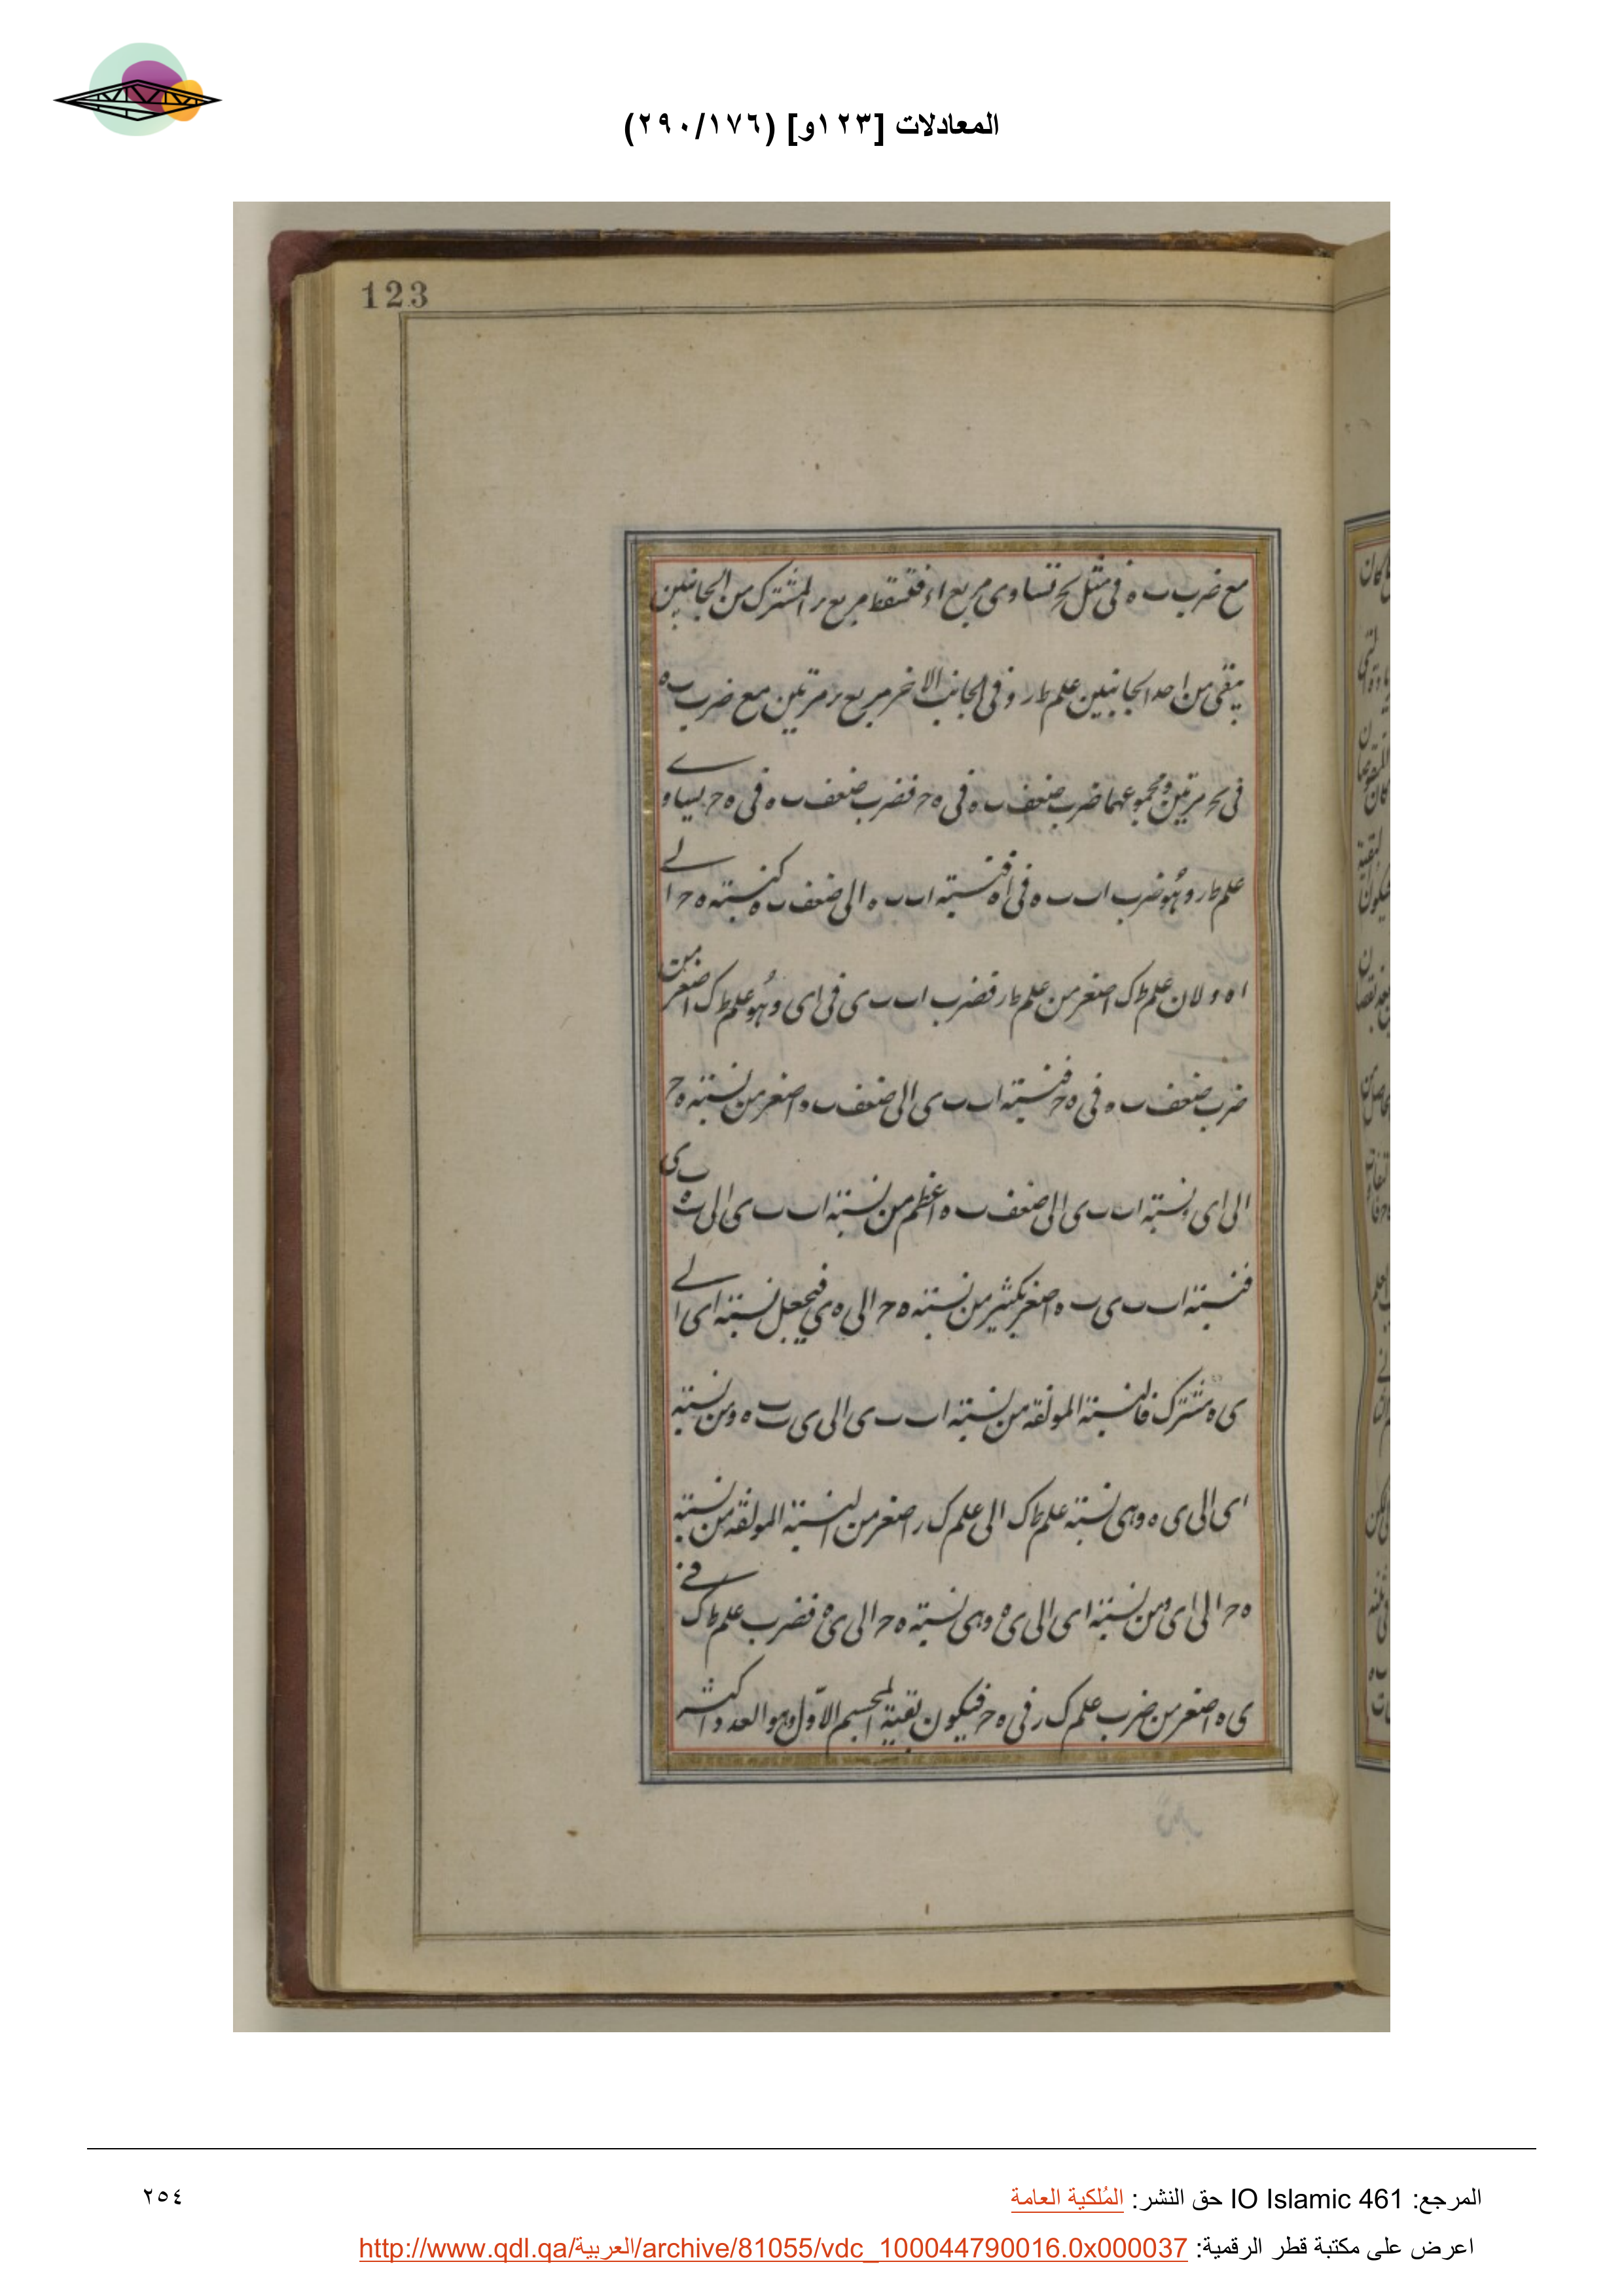 المعادلات [١٢٣و] (٢٩٠/١٧٦)
123
مع ضرب ٮ ه فى مثل تساوى مربع فتسقط مربع المشترك من الجانبين
يبقى من احد الجانبين علم طر وفى الجانب الاخر مربع مرتين مع ضرب ٮه
فى مرتين ومجموعهما ضرب ضعف ٮ ه فى ه ح فضرب ضعف ٮ ه فى ه ح يساوى
علم طر وهو ضرب اٮ ٮ ه فى اه فنسبته اٮ ٮ ه الى ضعف ٮ ه كنسبته ه ح الى
ا ه ولان علم طك اصغر من علم طر فضرب اٮ ٮ ى فى اى وهو علم طك اصغر من
ضرب ضعف ٮ ه فى ه ح فنسبته اٮ ٮ ى الى ضعف ٮ ه اصغر من نسبته ه ح
الى اى ونسبته اٮ ٮ ى الى ضعف ٮ ه اعظم من نسبته اٮ ٮ ى الى ٮ ى
فنسبته اٮ ٮ ى ٮ ه اصغر بكثير من نسبته ه ح الى ه ى فيجعل نسبته اى الى
ى ه مشترك فالنسبته المولفه من نسبته اٮ ٮ ى الى ى ٮ ٮ ه ومن نسبته
اى الى ى ه وهى نسبته علم طك الى علم ك ر اصغر من النسبته المولفه من نسبته
ه ح الى اى ومن نسبته اى الى ى ه وهى نسبته ه ح الى ى ه فضرب علم طك فى
ى ه اصغر من ضرب علم ك ر فى ه ح فيكون بقية المجسم الاول وهو العدد اكثر
المرجع: IO Islamic 461 حق النشر: المُلكية العامة
٢٥٤
اعرض على مكتبة قطر الرقمية: http://www.qdl.qa/العربية/archive/81055/vdc_100044790016.0x000037